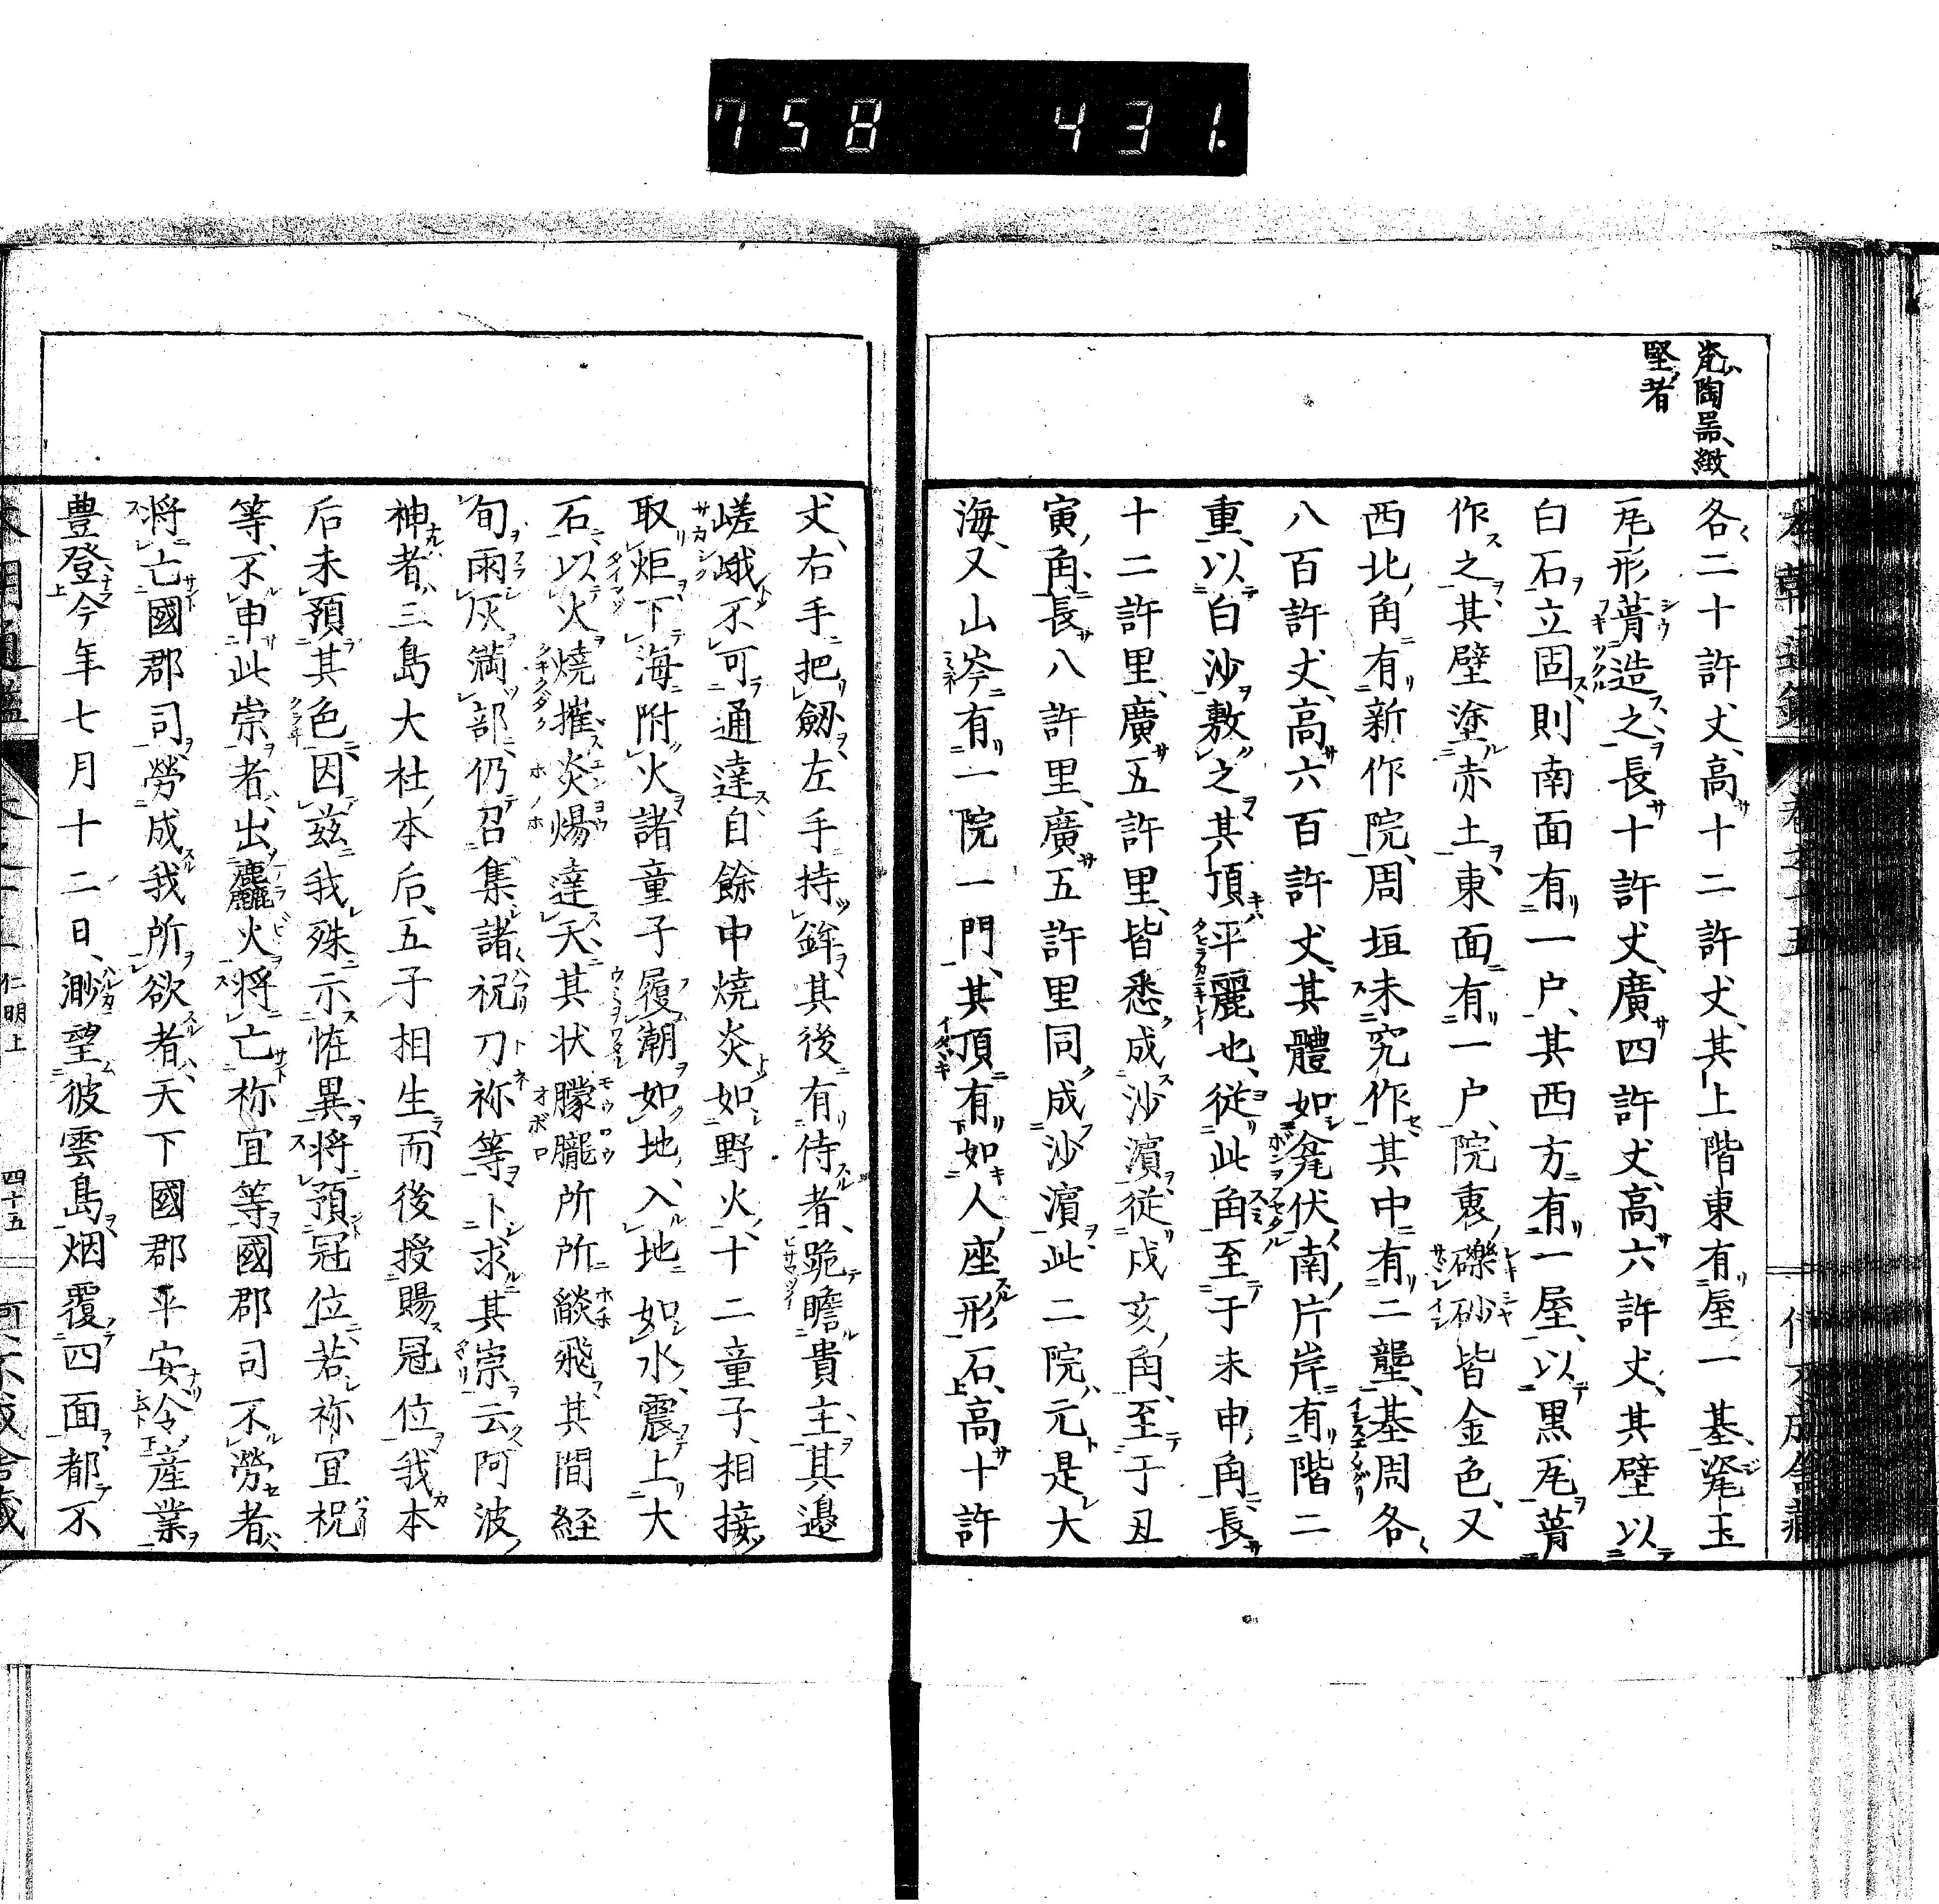 758 431.
瓷陶器緻
堅者
各二十許丈、高十二許丈、其上階東有屋一基、瓷玉
瓦形葺造之、長十許丈、廣四許丈、高六許丈、其壁以
白石立固、則南面有一戸、其西方有一屋、以黒瓦葺
作之、其壁塗赤土、東面有一戸、院裏礫砂皆金色、又
西北角有新作院、周垣未究作、其中有二壟、基周各
八百許丈、高六百許丈、其體如瓮伏、南片岸有階二
重、以白沙敷之、其頂平麗也、從此角至于未申角、長
十二許里、廣五許里、皆悉成沙濱、從戌亥角、至于丑
寅角、長八許里、廣五許里、同成沙濱、此二院、元是大
海、又山岑有一院一門、其頂有如人座形石、高十許
丈、右手把劔、左手持鉾、其後有侍者、跪瞻貴主、其邉
嵯峨不可通達、自餘申燒炎如野火、十二童子、相接
取炬、下海附火、諸童子履潮如地、入地如水、震上大
石、以火燒摧、炎煬達天、其状朦朧、所所燄飛、其間経
旬、雨灰満部、仍召集諸祝刀祢等、卜求其祟云、阿波
神者、三島大社本后、五子相生、而後授賜冠位、我本
后未預其色、因茲我殊示恠異、將預冠位、若祢宜祝
等、不申此祟者、出麤火將亡祢宜等、國郡司不勞者、
將亡國郡司、勞成我所欲者、天下國郡平安、令産業
豊登、今年七月十二日、渺望彼雲島、烟覆四面、都不
仁明上
四十五